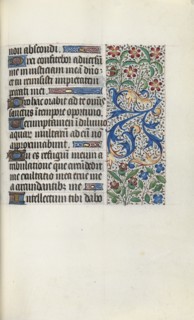 non abscondi.
Dixi confitebor adversum
me iniusticiam meam dño:
et tu remisisti impietatem
peccati mei.
Pro hac orabit ad te omis
sanctus in tempore oportuno.
Verumptamen in diluuio
aquarum multarum ad eum non
approximabunt.
Tu es refugium meum a
tribulatione que circumdedit
me exultatio mea erue me
a circundantibus me.
Intellectum tibi dabo